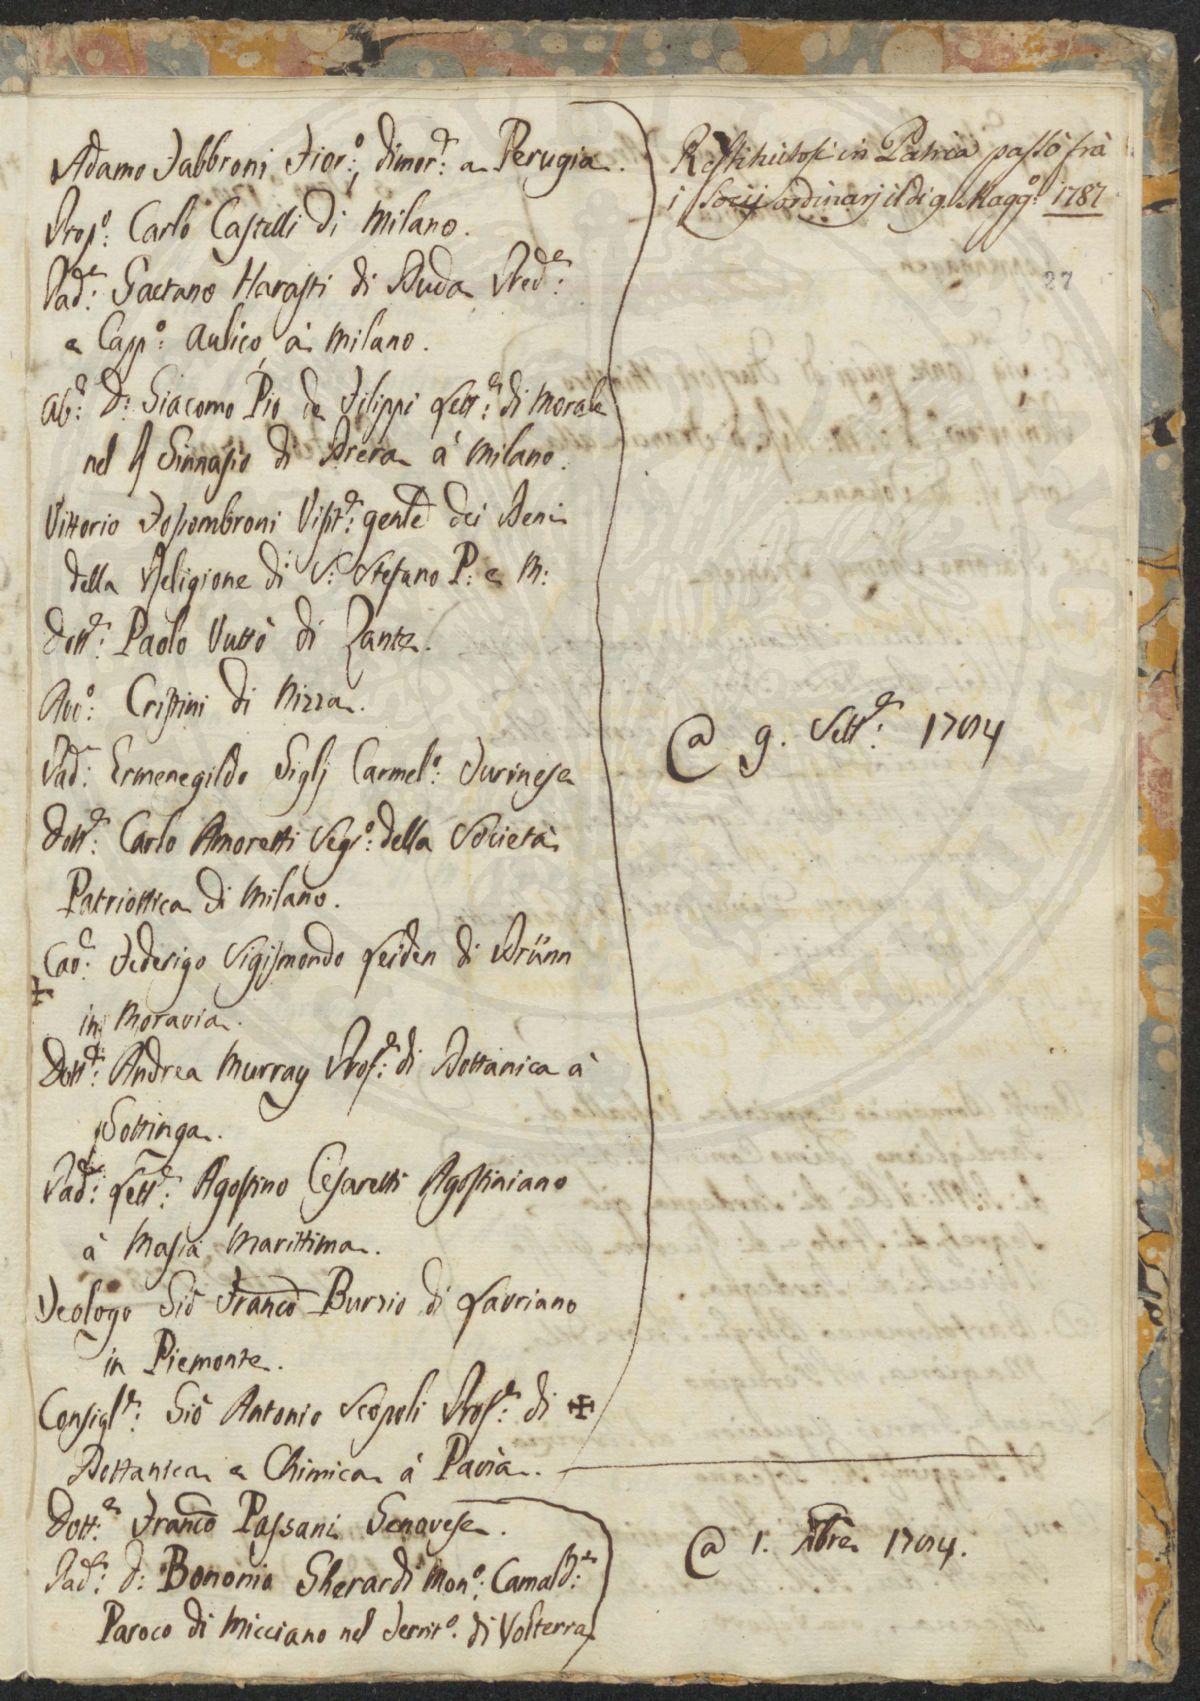 Adamo Fabbroni Fior:º, dimor:te a Perugia.
Prop:º Carlo Castelli di Milano.
Pad:e Gaetano Harasti di Buda Pred:e
e Capp:º Aulico, à Milano.
Ab:e D: Giacomo Pio de Filippi Lett:e di Morale
nel R Ginnasio di Brera à Milano.
Vittorio Fossombroni Visit:e genle dei Beni
della Religione di S: Stefano P: e M:
Dott:e Paolo Vuttò di Zante.
Avv:º Cristini di Nizza.
Pad:e Ermenegildo Siglj Carmel:º Turinese
Dott:e Carlo Amoretti Segr:º della Società
Patriottica di Milano.
Cav:e Federigo Sigismondo Leiden di Brünn
in Moravia.
Dott:e Andrea Murray Prof:e di Bottanica à
Gottinga.
Pad:e Lett:e Agostino Cesaretti Agostiniano
à Massa Marittima.
Teologo Giò Franco Burzio di Lauriano
in Piemonte.
Consigl:e Giò Antonio Scopoli Prof:e di ✠
Bottanica e Chimica à Pavia.
Dott:e Franco Passani Genovese.
Pad:e D: Bononio Gherardi Mon:º Camald:e
Paroco di Micciano nel Territ:º di Volterra
Restituitosi in Patria passò frà
i Socij ordinarj il dì 9. Magg:º 1787
27
@ 9. Sett:e 1784
@ 1. Xbre 1784.